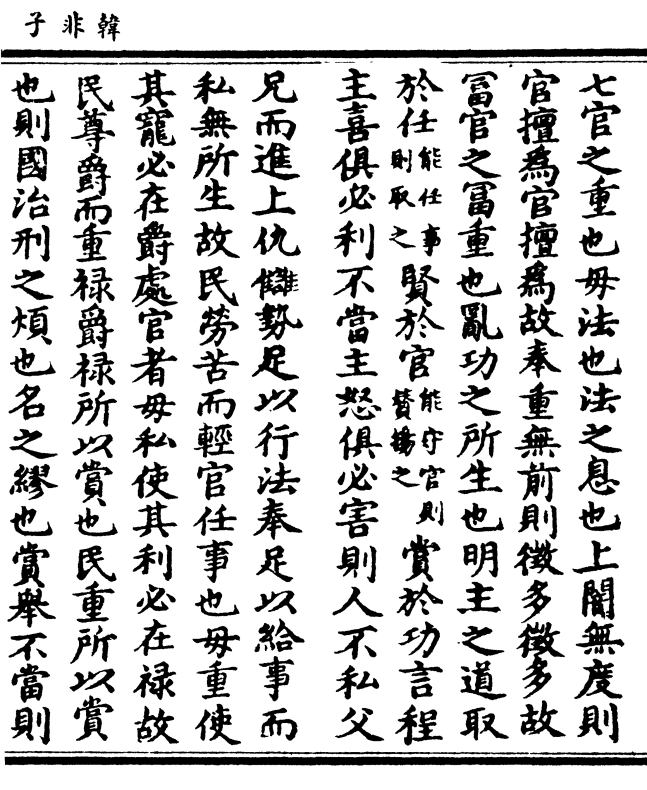 韓非子
七官之重也毋法也法之息也上闇無度則
官擅爲官擅爲故奉重無前則徵多徵多故
冨官之冨重也亂功之所生也明主之道取
於任能任事則取之賢於官能守官則贊揚之賞於功言程
主喜俱必利不當主怒俱必害則人不私父
兄而進上仇讎勢足以行法奉足以給事而
私無所生故民勞苦而輕官任事也毋重使
其寵必在爵處官者毋私使其利必在禄故
民尊爵而重禄爵禄所以賞也民重所以賞
也則國治刑之煩也名之繆也賞舉不當則